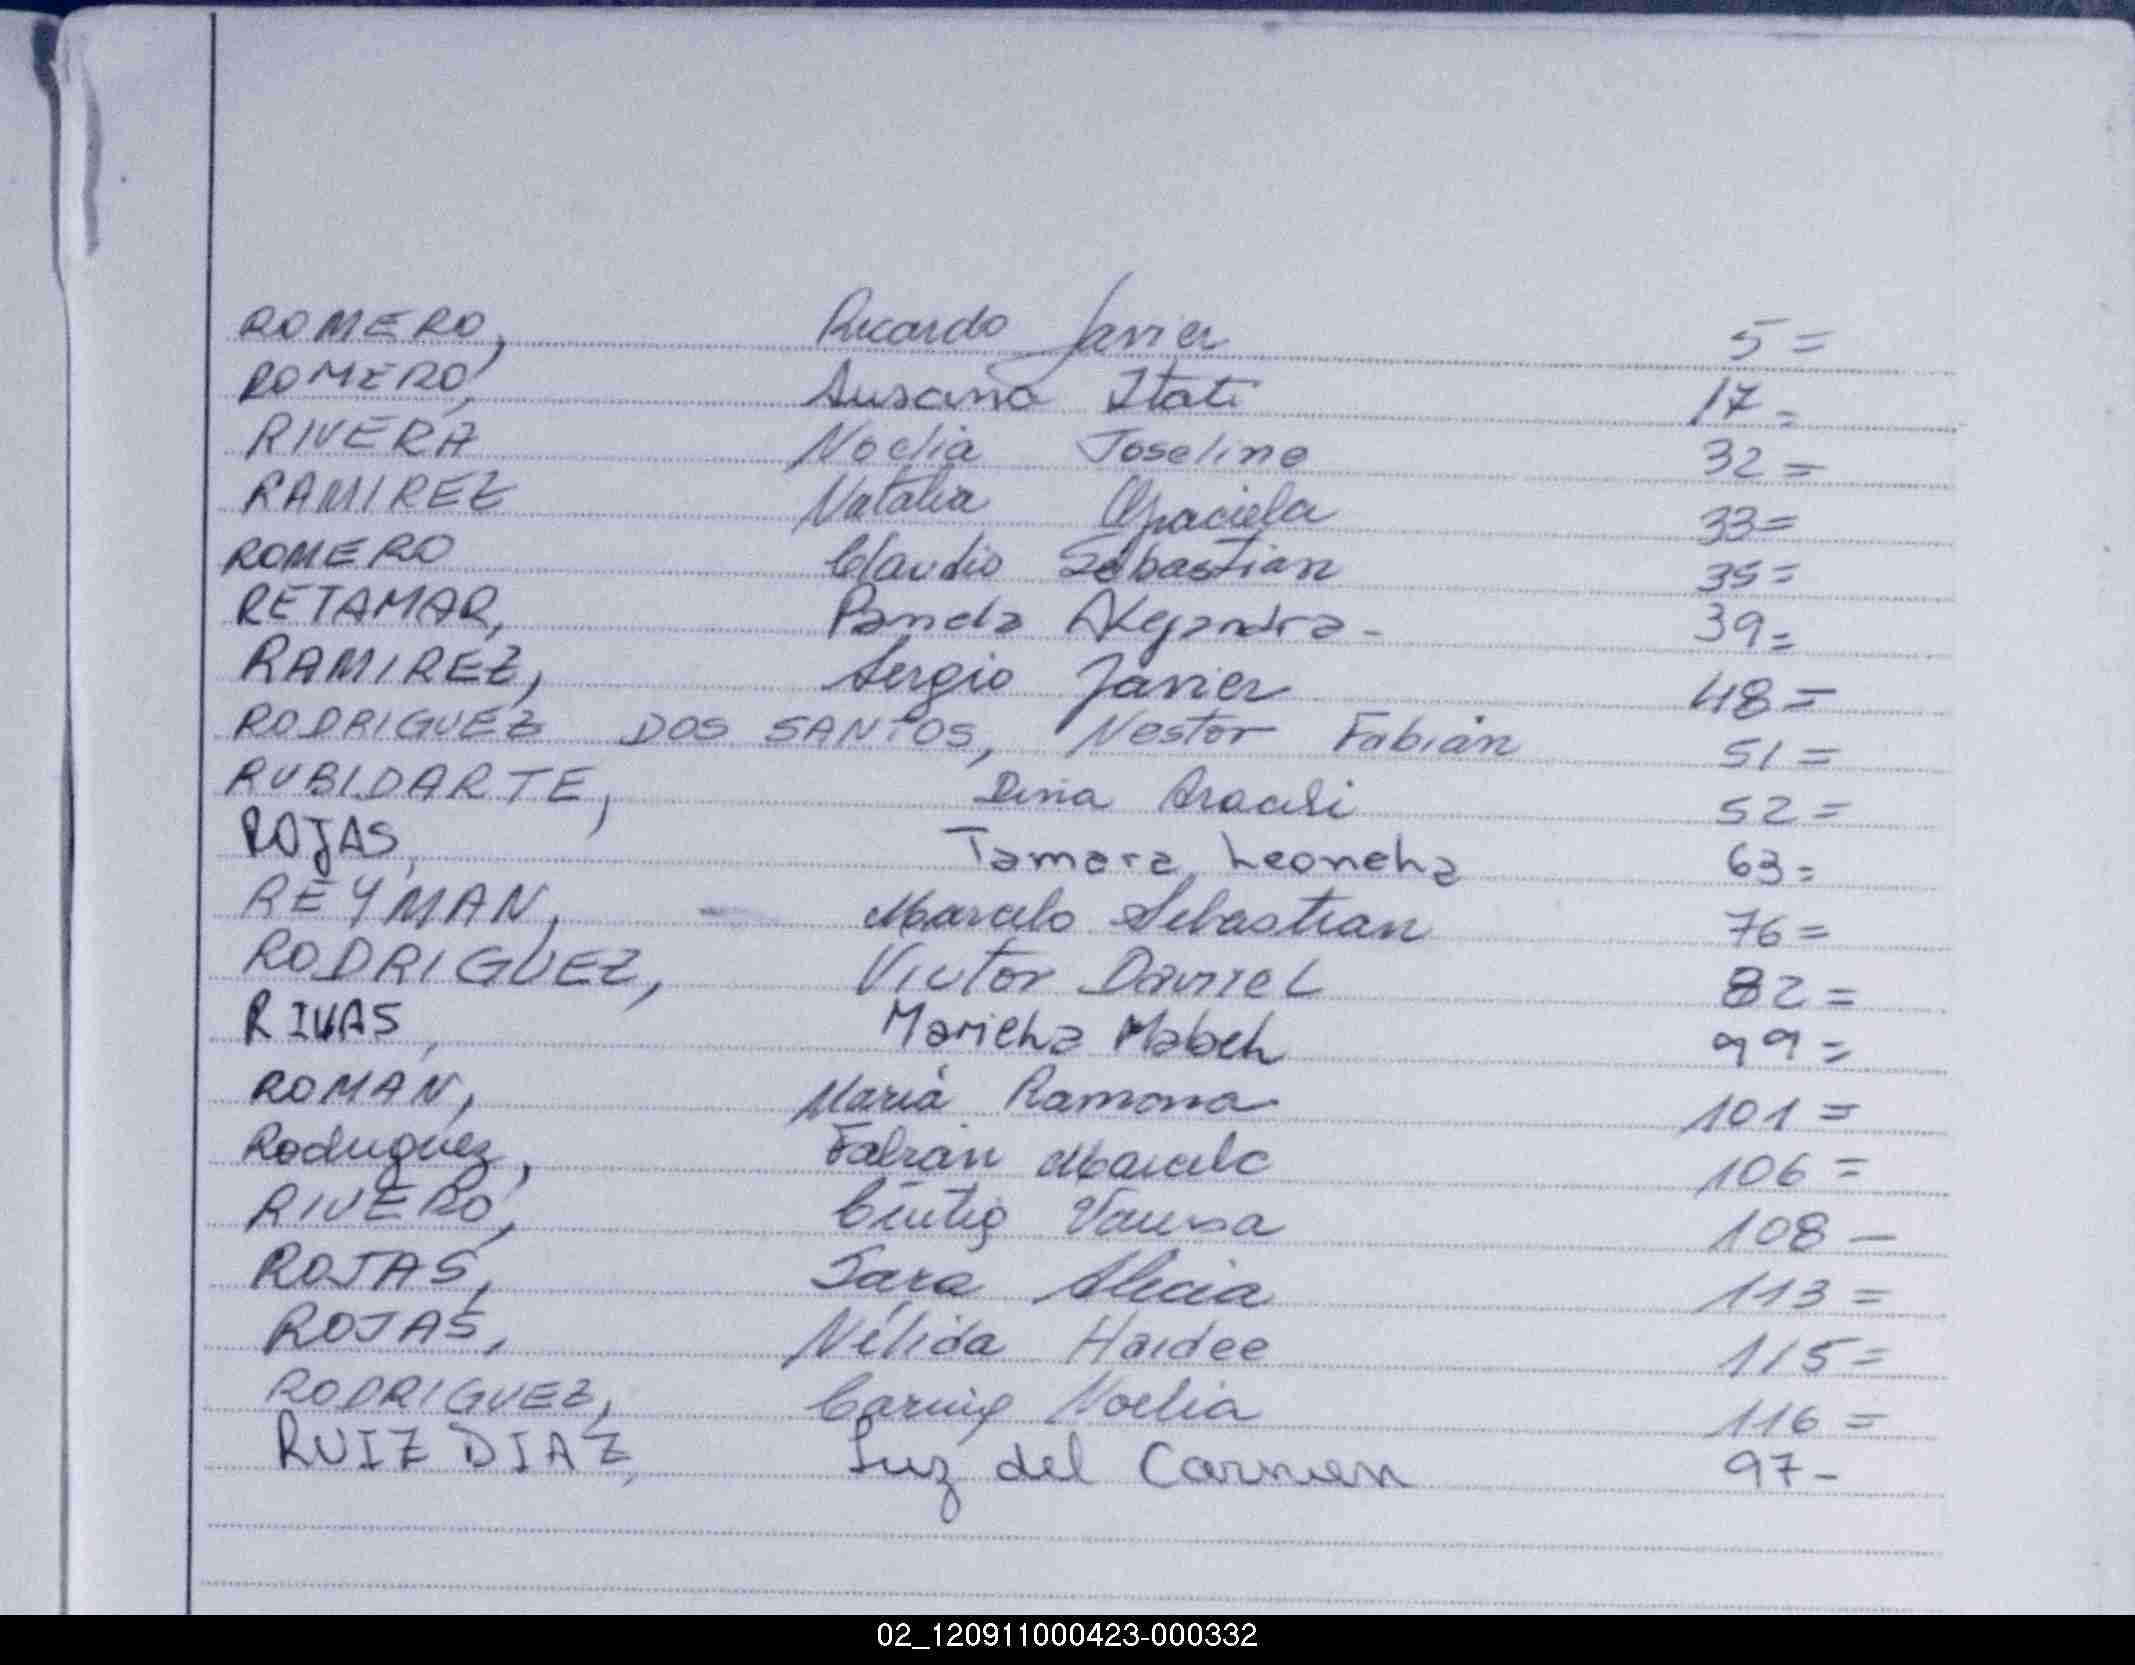 ROMERO, Ricardo Javier 5=
ROMERO, Susana Itati 17=
RIVERA Noelia Joseline 32=
RAMIREZ Natalia Graciela 33=
ROMERO Claudio Sebastian 35=
RETAMAR, Pamela Alejandra- 39=
RAMIREZ, Sergio Javier 48=
RODRIGUEZ DOS SANTOS, Nestor Fabián 51=
RUBIDARTE, Araceli 52=
ROJAS, Tamara Leonela 63=
REYMAN, Marcelo Sebastian 76=
RODRIGUEZ, Victor Daniel 82=
RIVAS, Mariela Mabel 99=
ROMAN, Maria Ramona 101=
Rodriguez, Fabián Marcelo 106=
RIVERO, Vanesa 108-
ROJAS, Sara Alicia 113=
ROJAS, Nélida Haidee 115=
RODRIGUEZ, Carina Noelia 116=
RUIZ DIAZ, Luz del Carmen 97-
02_120911000423-000332